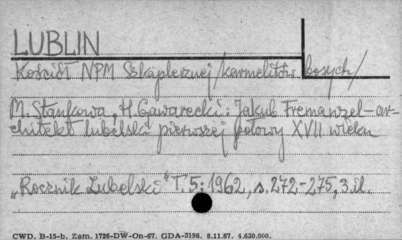 LUBLIN
Kościół NPM Szkaplerznej /karmelitów bosych/
M. Stankowa, H. Gawarecki: Jakub Fremanzel - ar-
chitekt lubelski pierwszej połowy XVII wieku
"Rocznik Lubelski" T. 5: 1962, s. 272-275, 3 il.
CWD. B-15-b. Zam. 1726-DW-On-67. GDA-3198. 8.11.67. 4.630.000.